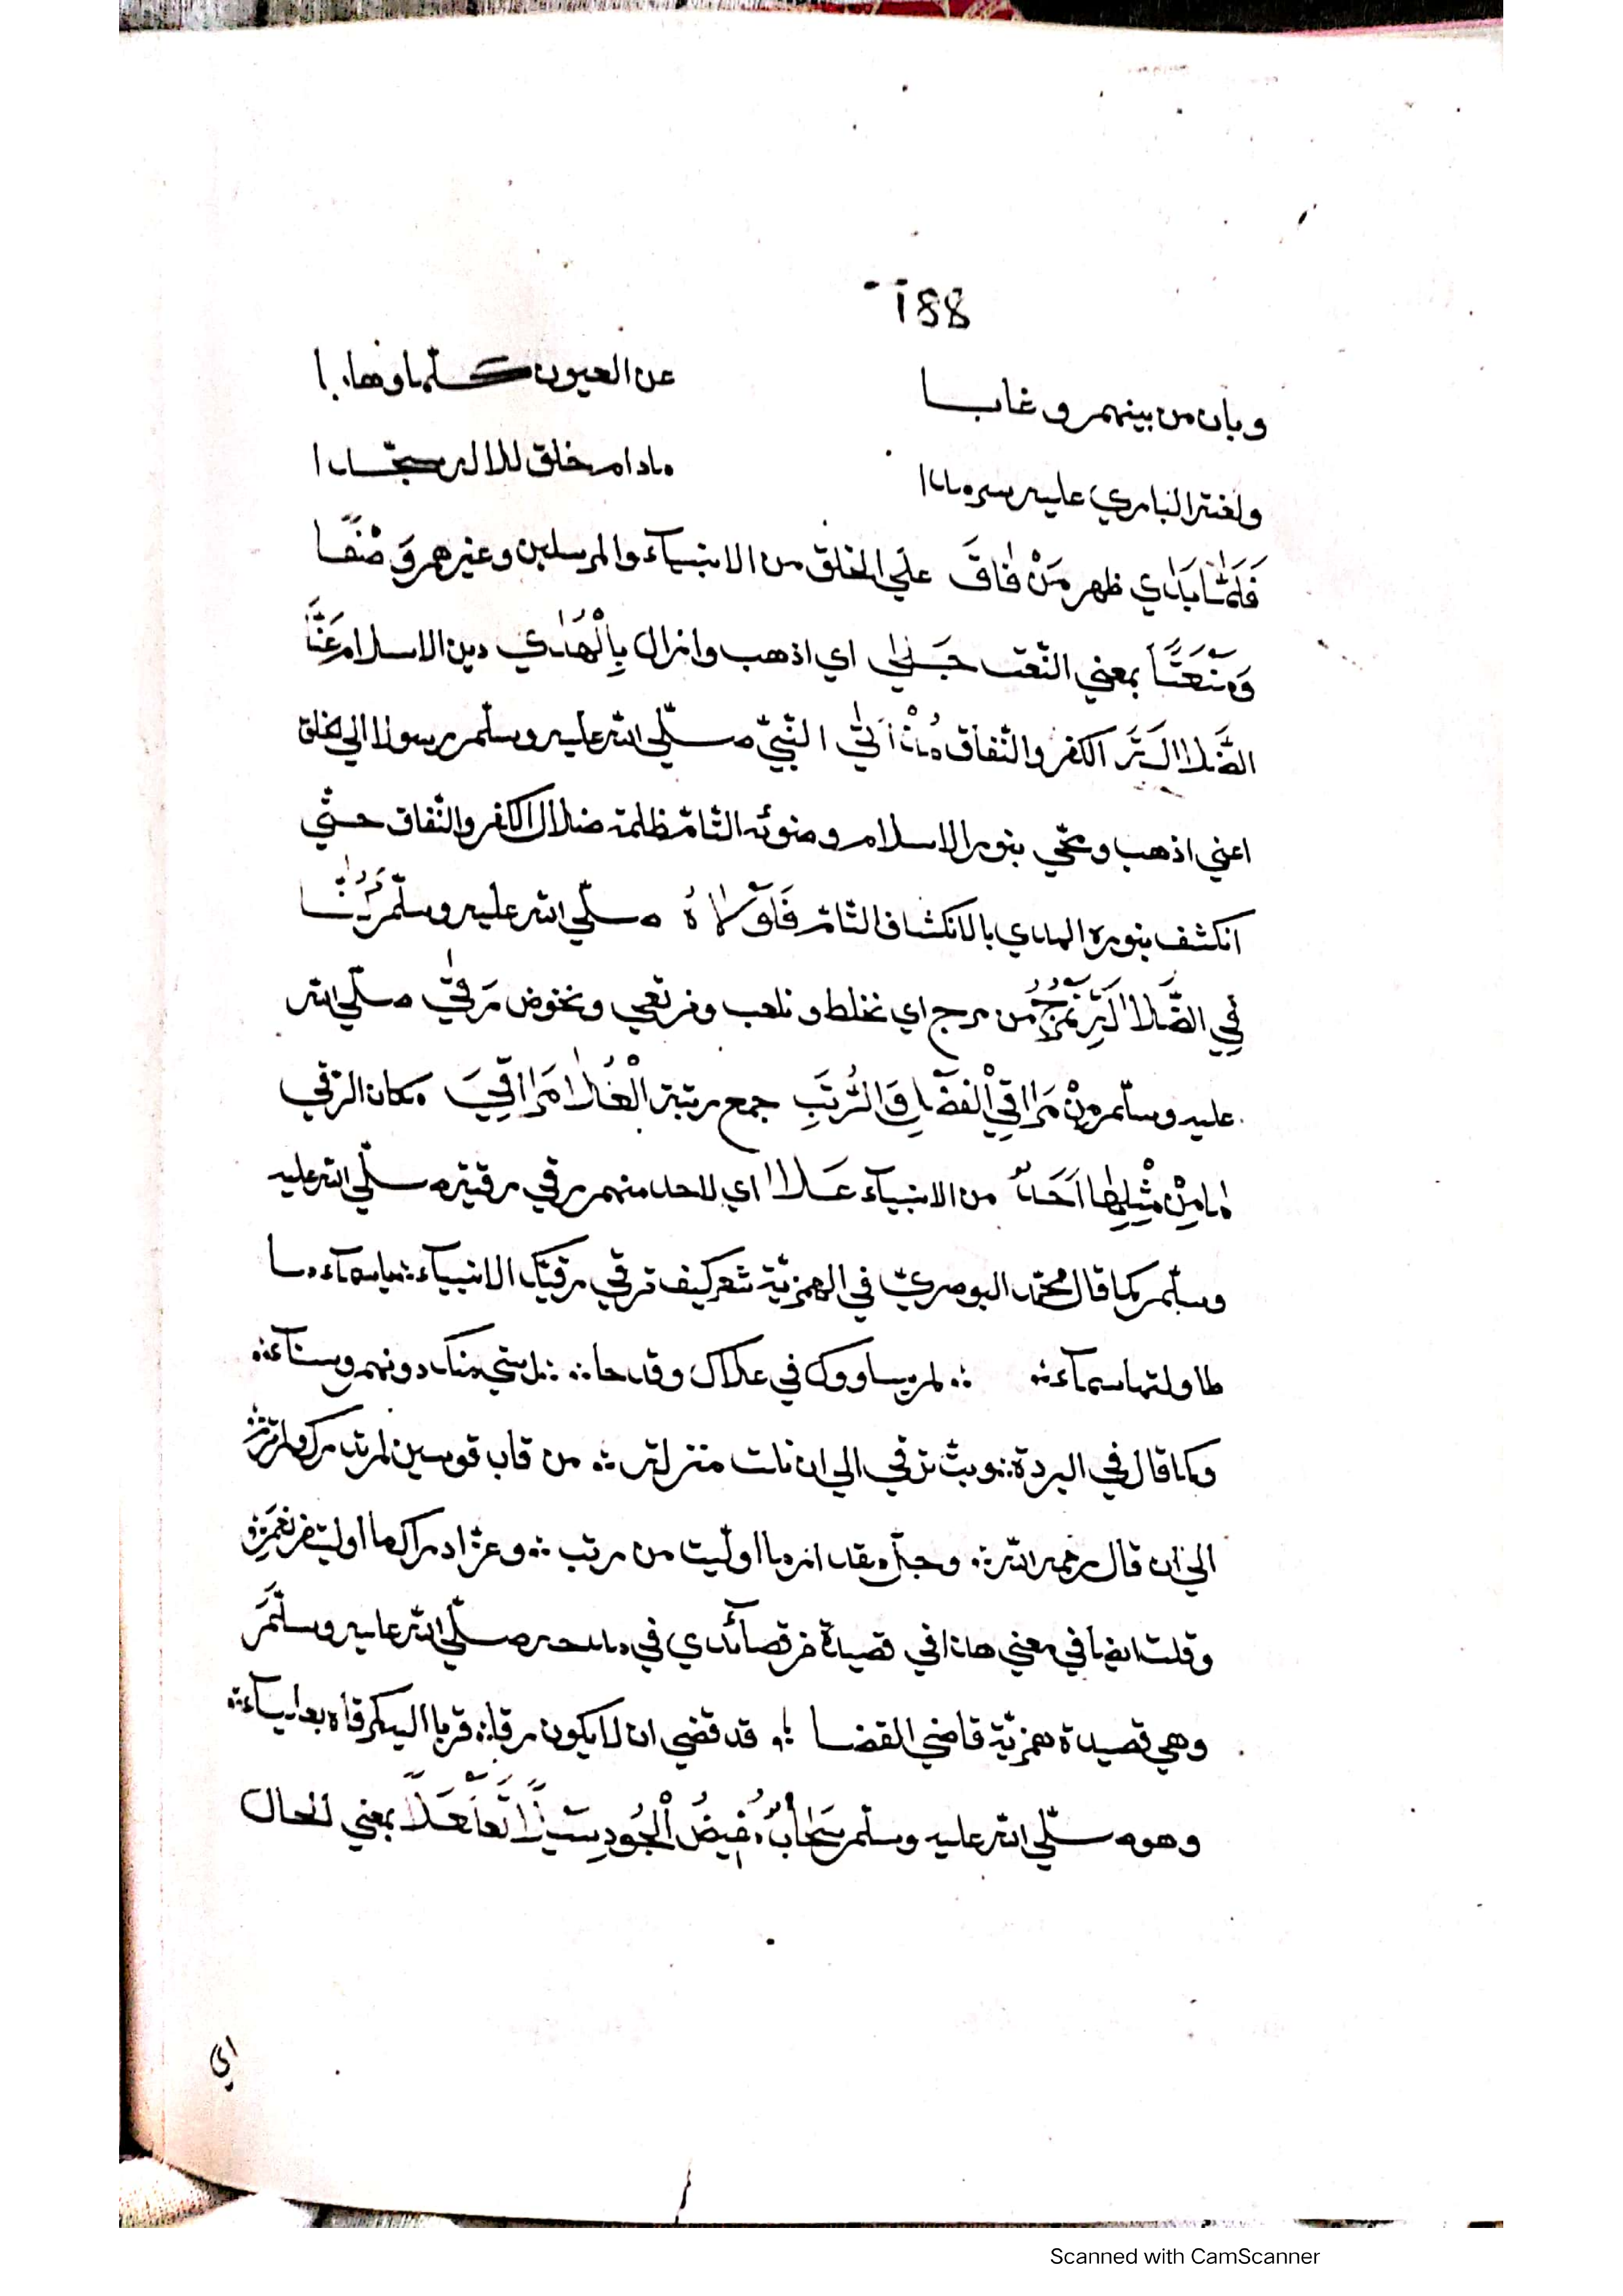 188
وبان من بينهم وغابا عن العيون
ما دام خلق للاله سجدا
فَلَمَّا بَدَا اي ظهر مَنْ فَاقَ علي الخلق من الانبيآء والمرسلين وغيرهم وَصْفًا
وَمَنْعَتًا بمعني النّعت جَلٰي اي اذهب وازال بِالْهُدٰي دين الاسلام عَنَّا
الضَّلَالَةَ الكفر والنّفاق مُذْ اَتٰي النّبيّ صلّي الله عليه وسلّم رسولا الي الخلق
اعني اذهب بنور الاسلام وضوئه التّامّ ظلمة ضلال الكفر والنّفاق حتّي
انكشف بنوره الهادي بالانكشاف التّامّ فَلَوْلَاهُ صلّي الله عليه وسلّم كُنَّا
فِي الضَّلَالَةِ نَمْرُجُ من مرج اي نخلط ونلعب ونرتعي ونخوض رَقٰي صلّي الله
عليه وسلّم مِنْ مَرَاقِي الْفَضْلِ وَالرُّتَبِ جمع رتبة الْعُلَا مَرَاقِيَ مكان الرّقي
مَا مِنْ مِثْلِهَا اَحَدٌ من الانبيآء عَلَا اي لا احد منهم رقي مرقيته صلّي الله عليه
وسلّم كما قال محمّد البوصريّ في الهمزيّة شعر كيف ترقي رقيّك الانبيآء ؞ يا سمآء ما
طاولتها سمآء ؞ ؞ لم يساووك في علاك وقد حا ؞ ؞ ل سني منك دونهم وسنآء ؞
وكما قال في البردة ؞ وبتّ ترقي الي ان نلت منزلة ؞ من قاب قوسين لم تدرك ولم ترم ؞
الي ان قال رحمه الله ؞ وجلّ مقدار ما اولّيت من رتب ؞ وعزّ ادراك ما اوليت من نعم ؞
وقلت ايضا في معني هذا في قصيدة من قصآئدي في مدحه صلّي الله عليه وسلّم
وهي قصيدة همزيّة قاضي القضا ؞ قد قضي ان لا يكون مرقاة ؞ قربا اليك رقاه بعد ايبآء ؞
وهو صلّي الله عليه وسلّم سَحَابٌ مُفِيضُ الْجُودِ بمعني الحال
اي
Scanned with CamScanner